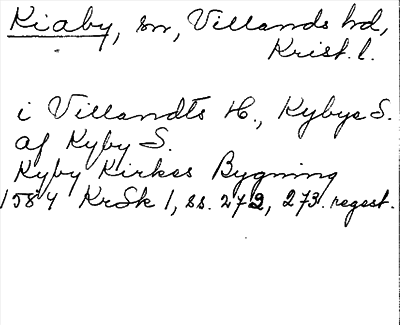 Kiaby, sn, Villands hd,
Krist. l.
i Villandts H., Kybye S.
af Kyby S.
Kyby Kirkes Bygning
1584 KrSk 1, ss. 272, 273. regest.